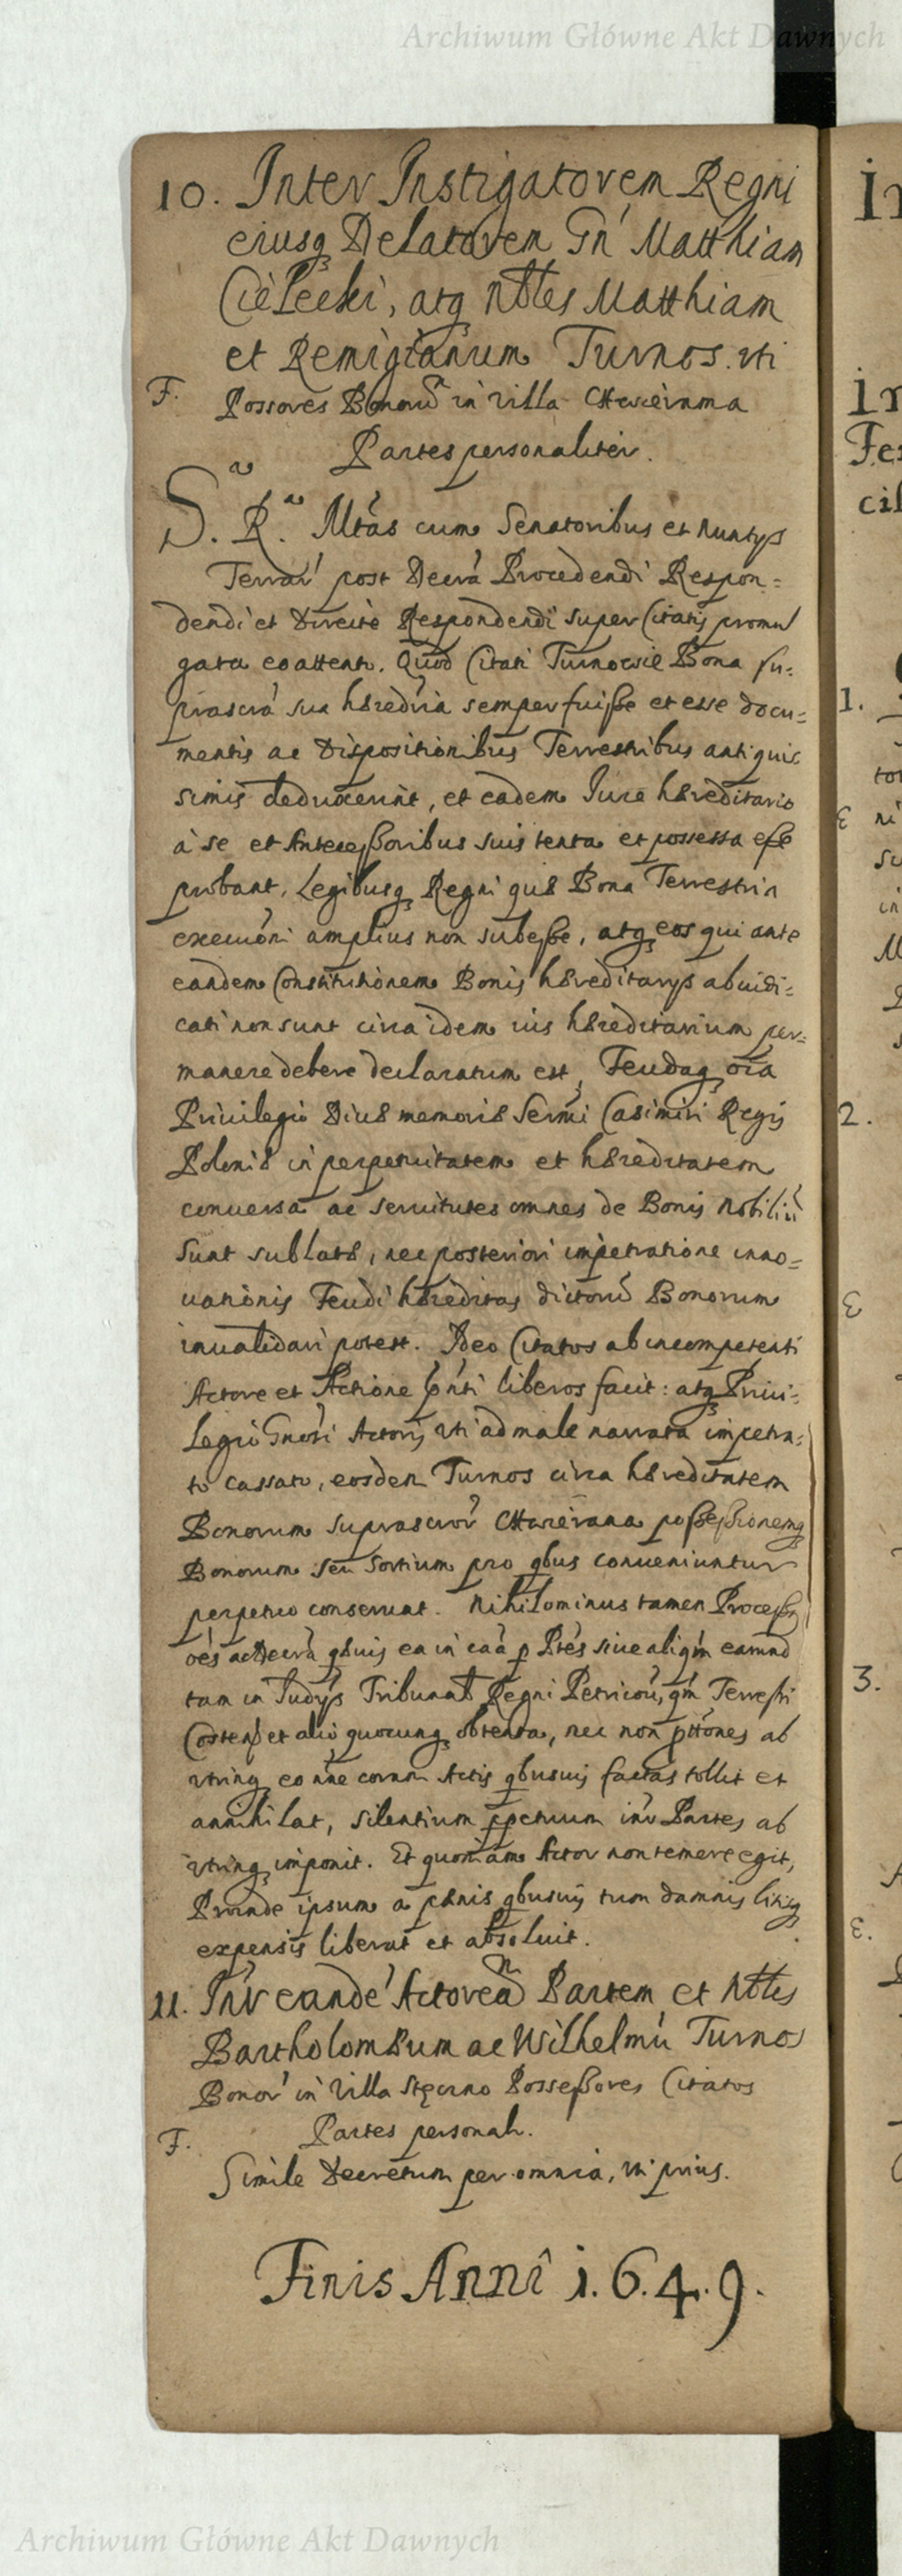 Archiwum Główne Akt Dawnych
10. Inter Instigatorem Regni
eiusq Delatorem Gn' Matthiam
Cielecki, atq Nobles Matthiam
et Remigianum Turnos. uti
F. Possores Bonorū in villa
Partes personaliter.
S. R.ª Mtas cum Senatoribus et Nuntys
Terrar' post Decrā Procedendi Respon=
dendi et Directe Respondendi super Citatis promul
gata eo attento. Quod Citati Turnowie Bona su=
prascrā sua hæredria semper fuisse et esse docu=
mentis ac Dispositionibus Terrestribus antiquis
simis deduxerint, et eadem Iure hæreditario
à se et Antecessoribus suis tenta et possessa esse
probant, Legibusq Regni quæ Bona Terrestria
execuōni amplius non subesse, atq eos qui ante
eandem Constitutionem Bonis hæreditarys abiudi=
cati non sunt circa idem ius hæreditarium per=
manere debere declaratum est, Feudaq oīa
Priuilegio Diuæ memoriæ Sermi Casimiri Regis
Poloniæ in perpetuitatem et hæreditatem
conuersa ac seruitutes omnes de Bonis Nobiliū
sunt sublatæ, nec posteriori impetratione inno=
uationis Feudi hæreditas dictorū Bonorum
inualidari potest. Ideo Citatos ab incompetenti
Actore et Actione pn̄ti liberos facit: atq Priui=
legio Gnosi Actoris uti ad male narrata impetra=
to cassato, eosdem Turnos circa hæreditatem
Bonorum suprascror' possessionemq
Bonorum seu Sortium pro qbus conueniuntur
perpetuo conseruat. Nihilominus tamen Process
oēs ac Decrā qæuis ea in caā p Ptēs siue aliqm
tam in Iudys Tribunal Regni Petricou, qm Terrestri
Costen et alio quocunq obtenta, nec non pttōnes ab
utrinq eo nn̄e coram Actis qbusuis factas tollit et
annihilat, silentium ppetuum intr Partes ab
utrinq imponit. Et quoniam Actor non temere egit,
Proinde ipsum a pænis qbusuis tum damnis litisq
expensis liberat et absoluit.
11. Intr eandē Actoream Partem et Nobles
Bartholomæum ac Wilhelmū Turnos
Bonor' in Villa Possessores Citatos
Partes personalr.
F.
Simile Decretum per omnia, ut prius.
Finis Anni 1.6.4.9.
1.
2.
3.
Archiwum Główne Akt Dawnych